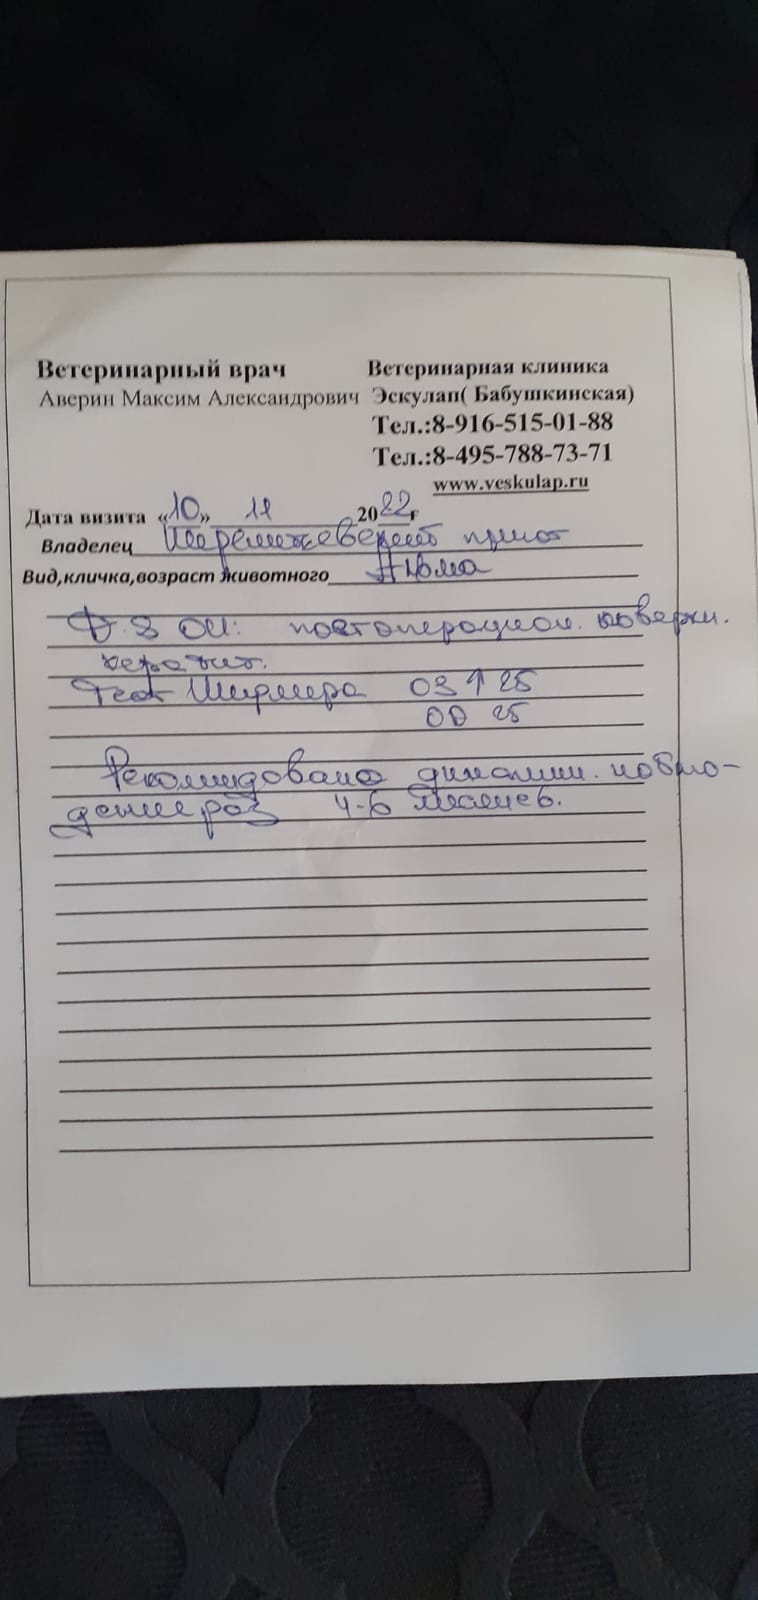 Ветеринарный врач Ветеринарная клиника
Аверин Максим Александрович Эскулап( Бабушкинская)
Тел.:8-916-515-01-88
Тел.:8-495-788-73-71
www.veskulap.ru
Дата визита «10» 11 2022г
Владелец приют
Вид,кличка,возраст животного
OU: постоперацион. поверхн.
кератит.
Тест Ширмера OS ↑ 25
OD 25
Рекомендовано динамич. наблю-
дение раз 4-6 месяцев.